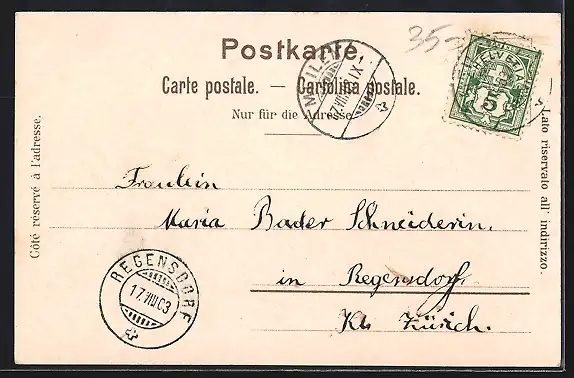 Postkarte.
35-
Carte postale. — Cartolina postale.
Nur für die Adresse.
HELVETIA
5
Côté réservé à l'adresse.
Lato riservato all' indirizzo.
Fräulein
Maria Bader Schneiderin.
in Regensdorf
Kt. Zürich.
REGENSDORF
17.VIII.03